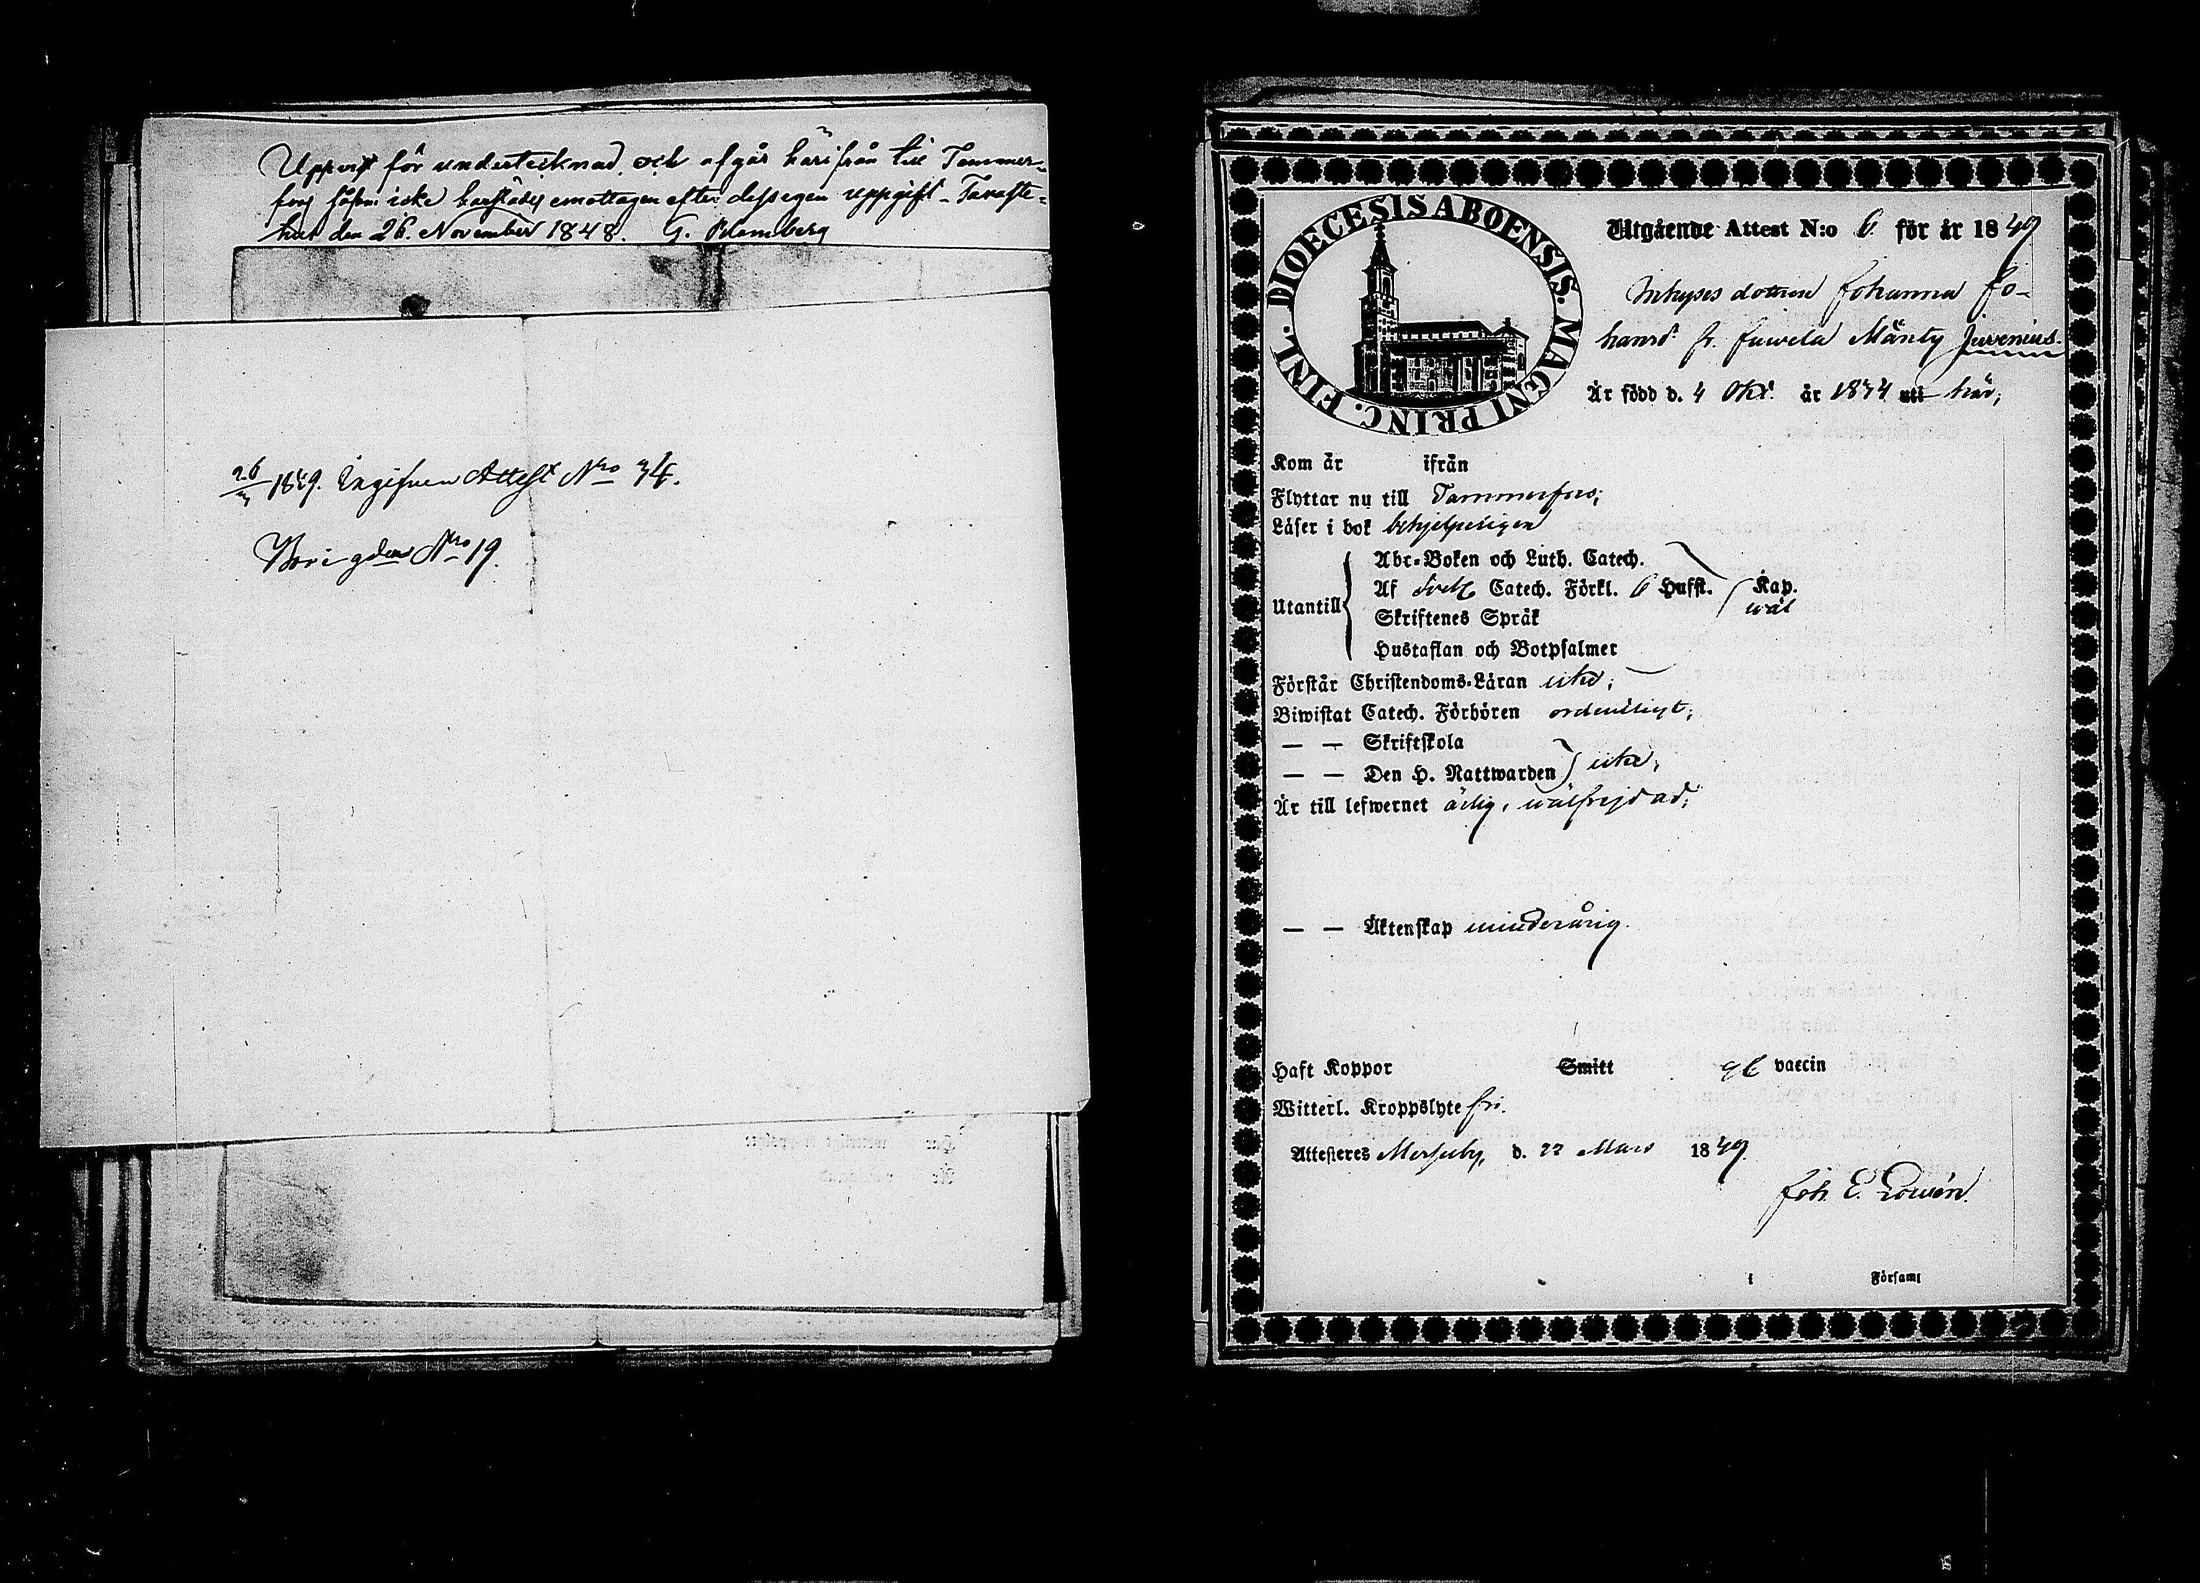 Uppvist för undertecknad och afgår härifrån till Tammer-
fors såsom icke härstädes emottagen efter dess egen uppgift. Tavaste-
hus den 26. November 1848. G. Blomberg
26/3 1849. Ingifven Attest Nro 34.
Nro 19.
DIOECESIS ABOENSIS. MAGNI PRINC. FINL.
Utgående Attest N:o 6 för år 1849
Inhyses dottren Johanna Jo-
hansdr fr. Juvela Mänty Juvenius.
Är född d. 4 Okt. år 1834 uti här;
Kom år ifrån
Flyttar nu till Tammerfors;
Läser i bok behjelpeligen
Utantill
Abc-Boken och Luth. Catech.
Af Catech. Förkl. 6 Hufst. Kap.
Skriftenes Språk wäl
Hustaflan och Botpsalmer
Förstår Christendoms-Läran icke;
Biwistat Catech. Förhören ordentligt;
— — Skriftskola
— — Den H. Nattwarden icke;
Är till lefwernet ärlig, wälfrejdad;
— — Äktenskap minderårig.
Haft Koppor Smitt vaccin
Witterl. Kroppslyte fri.
Attesteres d. 22 Mars 1849
Joh. E.
i Församl